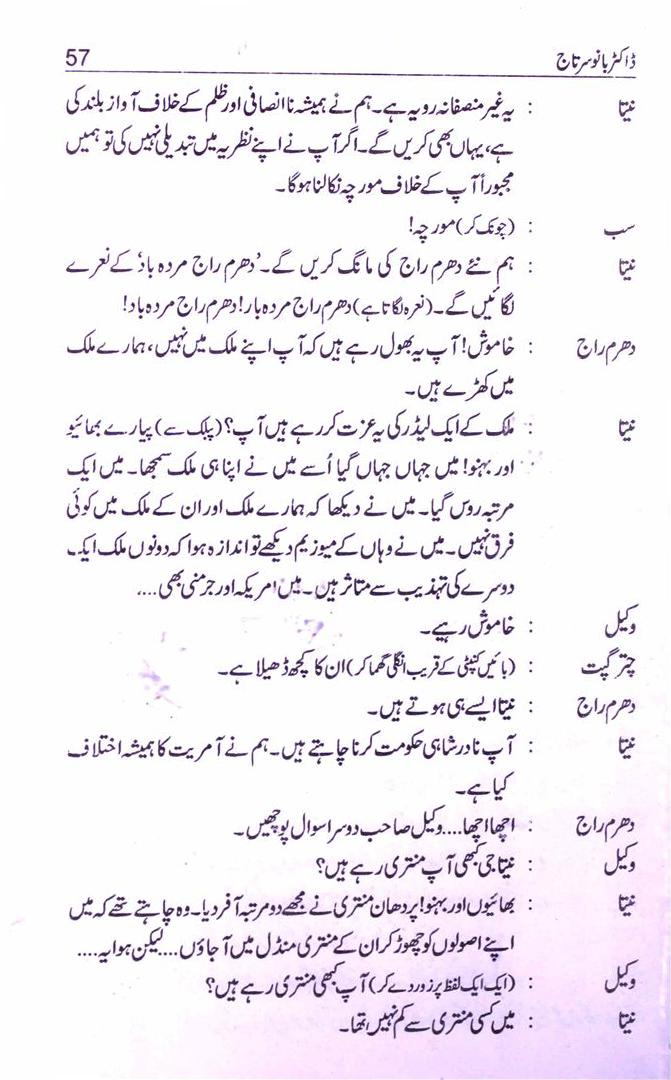 ڈاکٹر بانو سرتاج 57
نیتا : یہ غیر منصفانہ رویہ ہے۔ ہم نے ہمیشہ نا انصافی اور ظلم کے خلاف آواز بلند کی
ہے، یہاں بھی کریں گے۔ اگر آپ نے اپنے نظریہ میں تبدیلی نہیں کی تو ہمیں
مجبوراً آپ کے خلاف مورچہ نکالنا ہوگا۔
سب : (چونک کر) مورچہ!
نیتا : ہم نئے دھرم راج کی مانگ کریں گے۔ 'دھرم راج مردہ باد' کے نعرے
لگائیں گے۔ (نعرہ لگاتا ہے) دھرم راج مردہ بار! دھرم راج مردہ باد!
دھرم راج : خاموش! آپ یہ بھول رہے ہیں کہ آپ اپنے ملک میں نہیں، ہمارے ملک
میں کھڑے ہیں۔
نیتا : ملک کے ایک لیڈر کی یہ عزت کر رہے ہیں آپ؟ (پبلک سے) پیارے بھائیو
اور بہنو! میں جہاں جہاں گیا اُسے میں نے اپنا ہی ملک سمجھا۔ میں ایک
مرتبہ روس گیا۔ میں نے دیکھا کہ ہمارے ملک اور ان کے ملک میں کوئی
فرق نہیں۔ میں نے وہاں کے میوزیم دیکھے تو اندازہ ہوا کہ دونوں ملک ایک
دوسرے کی تہذیب سے متاثر ہیں۔ میں امریکہ اور جرمنی بھی....
وکیل : خاموش رہیے۔
چتر گپت : (بائیں کنپٹی کے قریب انگلی گھما کر) ان کا کچھ ڈھیلا ہے۔
دھرم راج : نیتا ایسے ہی ہوتے ہیں۔
نیتا : آپ نادر شاہی حکومت کرنا چاہتے ہیں۔ ہم نے آمریت کا ہمیشہ اختلاف
کیا ہے۔
دھرم راج : اچھا اچھا.... وکیل صاحب دوسرا سوال پوچھیں۔
وکیل : نیتا جی کبھی آپ منتری رہے ہیں؟
نیتا : بھائیوں اور بہنو! پردھان منتری نے مجھے دو مرتبہ آفر دیا۔ وہ چاہتے تھے کہ میں
اپنے اصولوں کو چھوڑ کر ان کے منتری منڈل میں آجاؤں.... لیکن ہوا یہ....
وکیل : (ایک ایک لفظ پر زور دے کر) آپ کبھی منتری رہے ہیں؟
نیتا : میں کسی منتری سے کم نہیں تھا۔